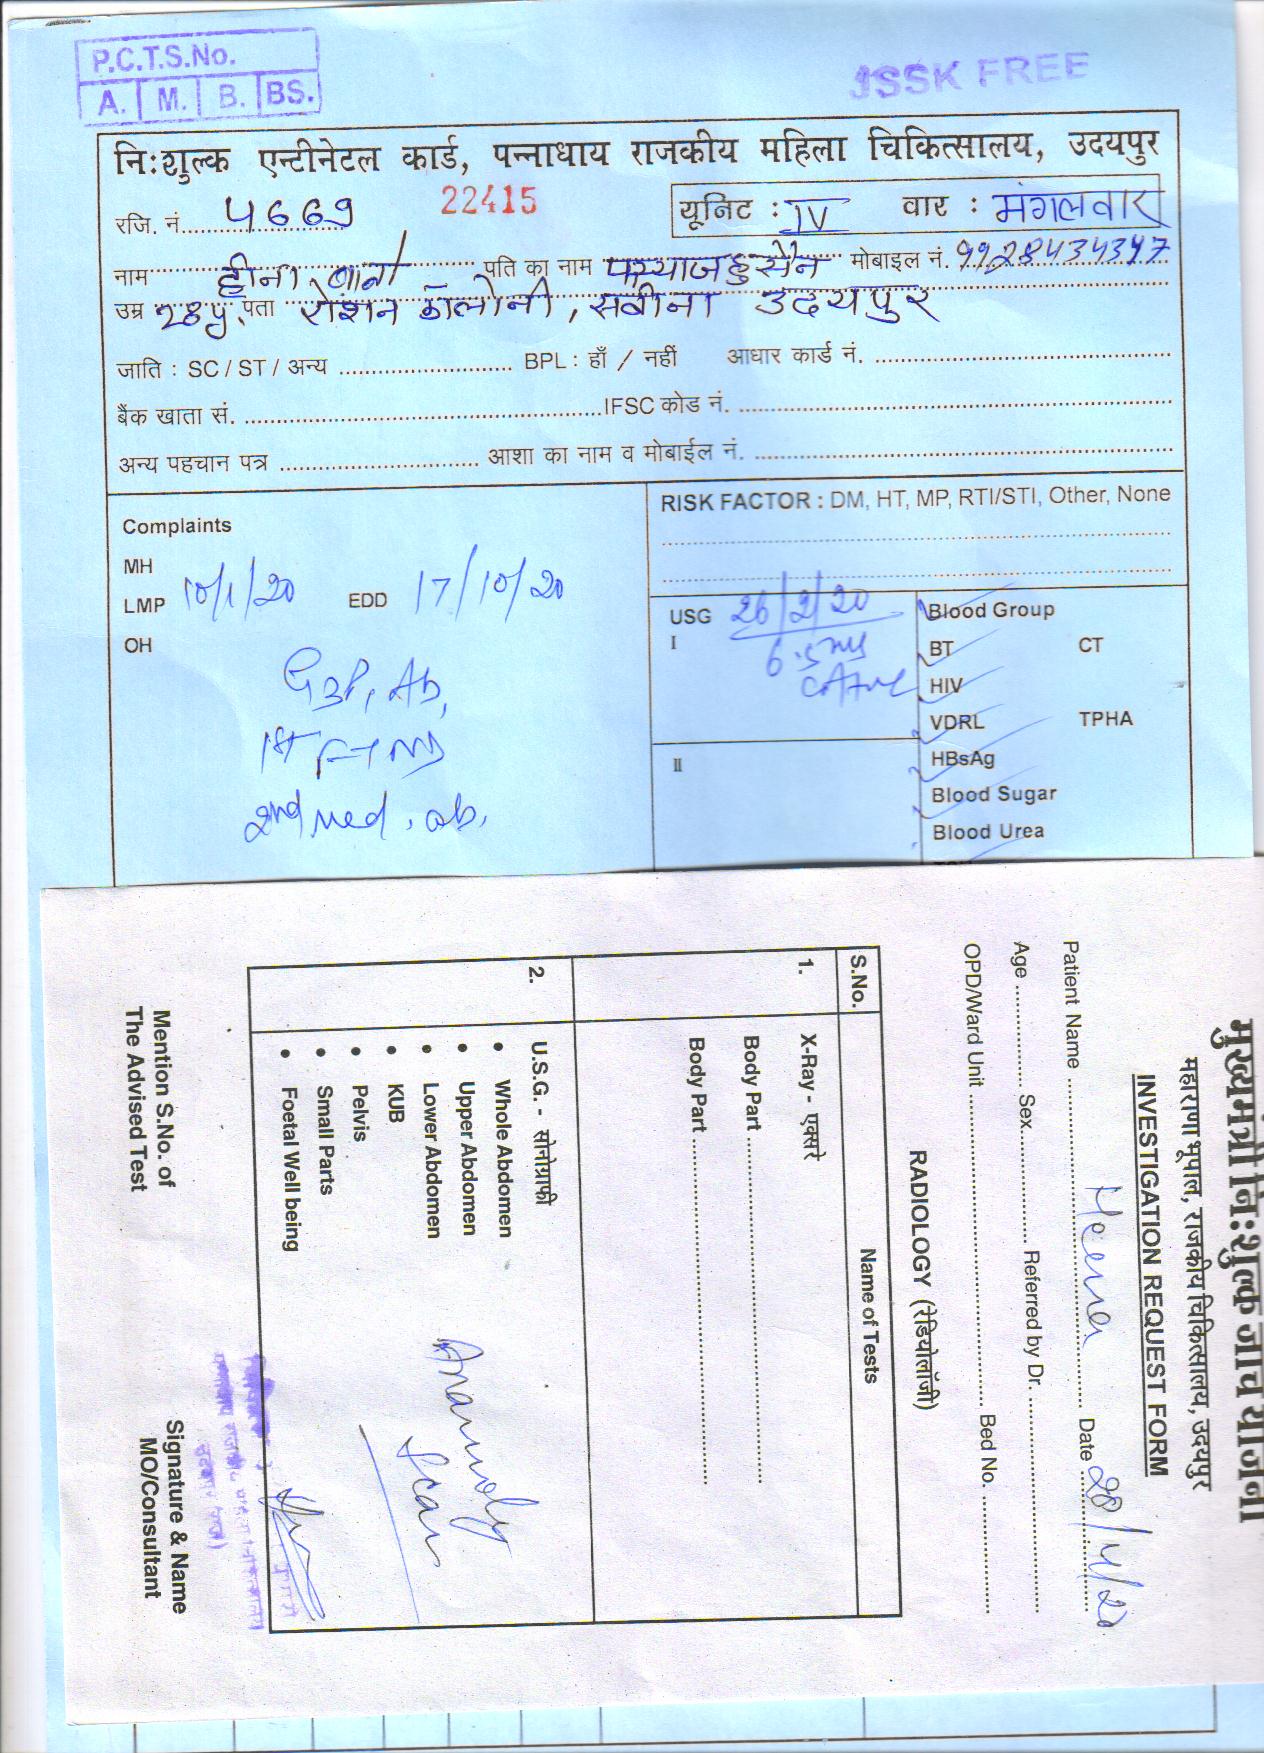 P.C.T.S.No.
A. M. B. BS.
JSSK FREE
नि:शुल्क एन्टीनेटल कार्ड, पन्नाधाय राजकीय महिला चिकित्सालय, उदयपुर
रजि. नं. 4669 22415 यूनिट : IV वार : मंगलवार
नाम हीना बानो पति का नाम मोबाइल नं.
उम्र 28y. पता रोशन कॉलोनी, सवीना उदयपुर
जाति : SC / ST / अन्य BPL : हाँ / नहीं आधार कार्ड नं.
बैंक खाता सं. IFSC कोड नं.
अन्य पहचान पत्र आशा का नाम व मोबाईल नं.
Complaints
MH
LMP 10/1/20 EDD 17/10/20
OH
G3P1Ab1
1st FTND
2nd med. ab.
RISK FACTOR : DM, HT, MP, RTI/STI, Other, None
USG 26/2/20
I
II
Blood Group
BT CT
HIV
VDRL TPHA
HBsAg
Blood Sugar
Blood Urea
मुख्यमंत्री नि:शुल्क जांच योजना
महाराणा भूपाल, राजकीय चिकित्सालय, उदयपुर
INVESTIGATION REQUEST FORM
Patient Name Heena Date 20/4/20
Age Sex Referred by Dr.
OPD/Ward Unit Bed No.
RADIOLOGY (रेडियोलॉजी)
S.No. Name of Tests
1. X-Ray - एक्सरे
Body Part
Body Part
2. U.S.G. - सोनोग्राफी
• Whole Abdomen
• Upper Abdomen
• Lower Abdomen
• KUB
• Pelvis
• Small Parts
• Foetal Well being
Anamoly
Scan
Mention S.No. of
The Advised Test
Signature & Name
MO/Consultant